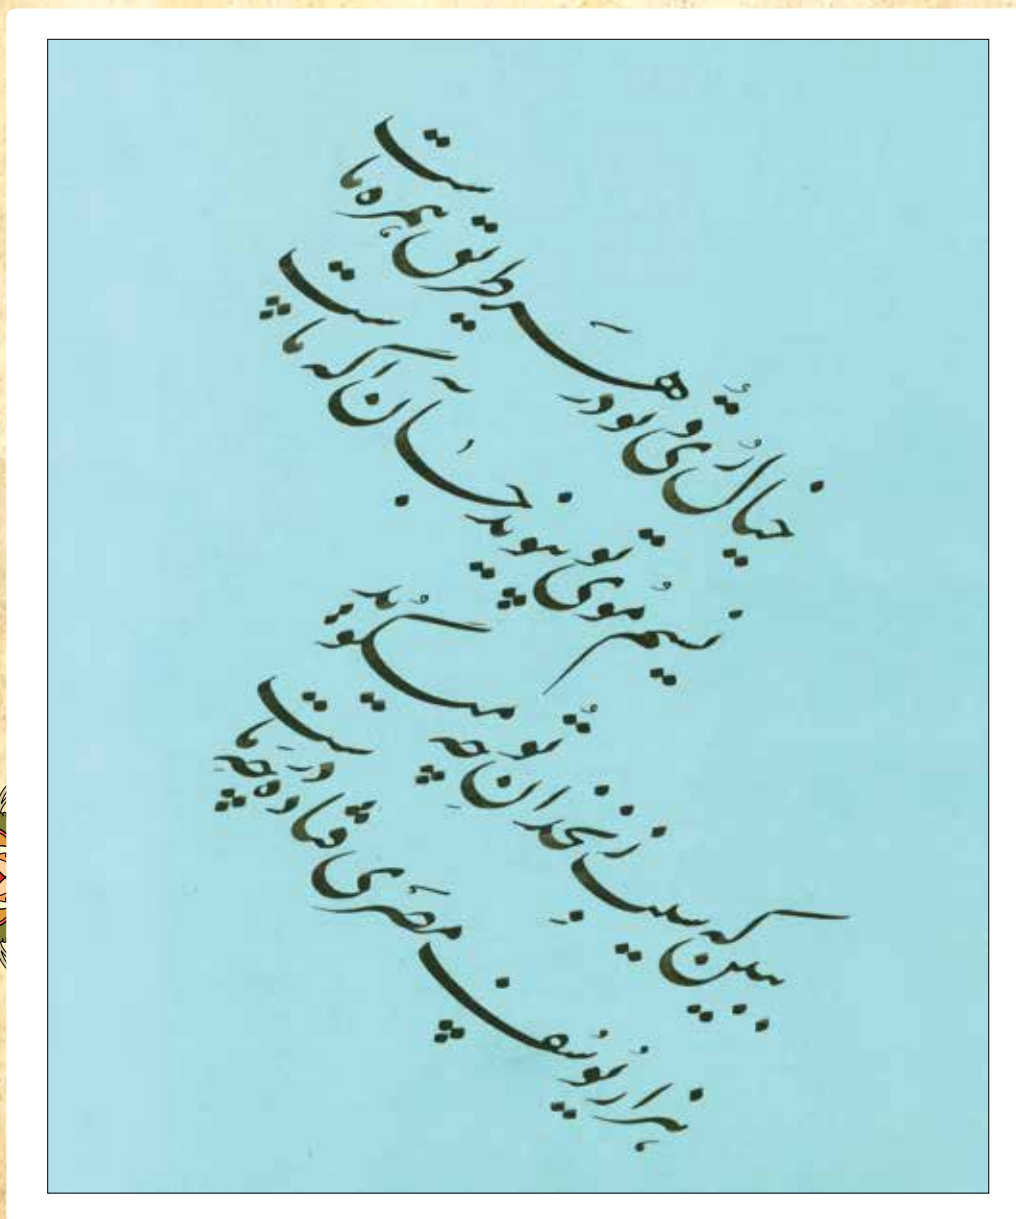 خیال روی تو در هر طریق همره ماست
نسیم موی تو پیوند جان آگه ماست
ببین که سیب زنخدان تو چه میگوید
هزار یوسف مصری فتاده در چه ماست